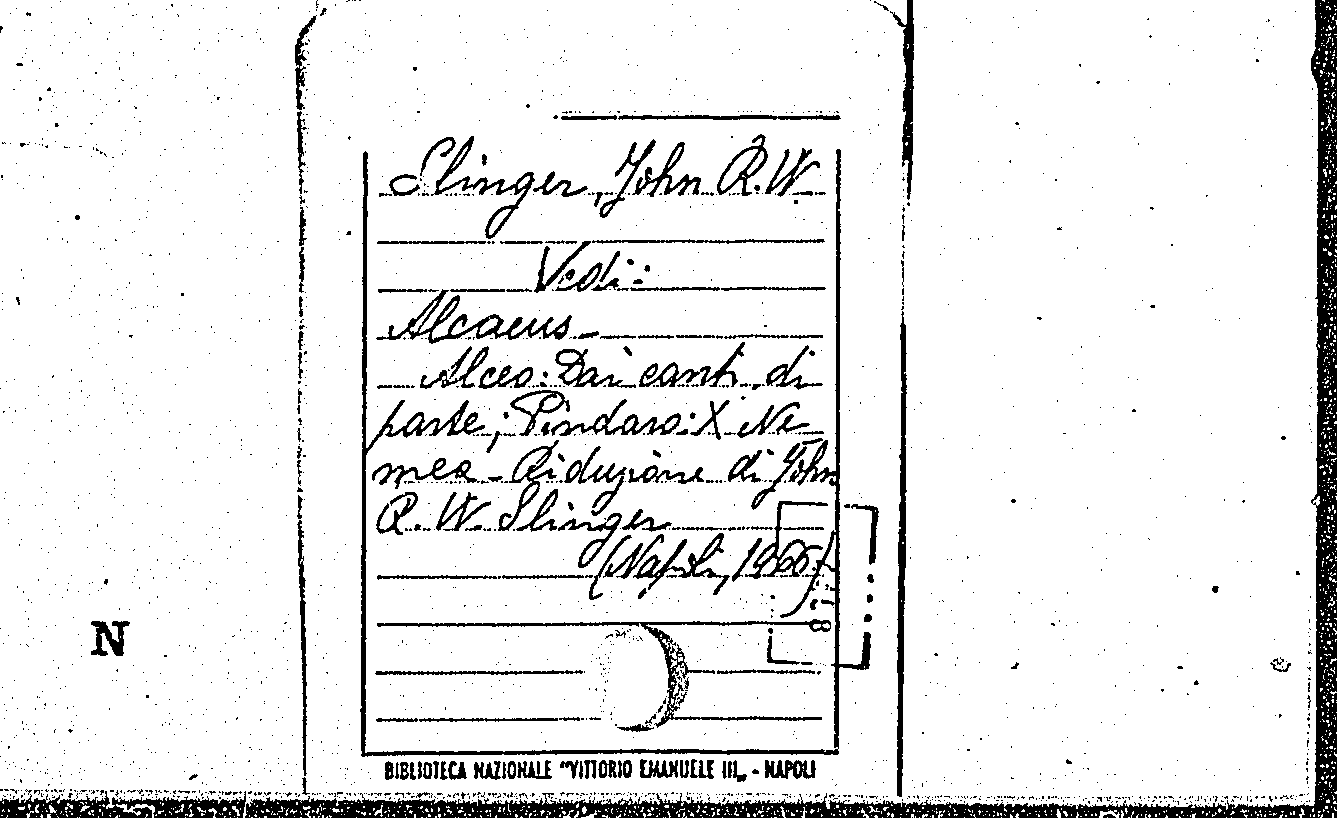 Slinger, John R. W.
Vedi:
Alcaeus -
Alceo: Dai canti di
parte; Pindaro: X Ne
mea - Riduzione di John
R. W. Slinger
(Napoli, 1966)
N
BIBLIOTECA NAZIONALE "VITTORIO EMANUELE III„ - NAPOLI